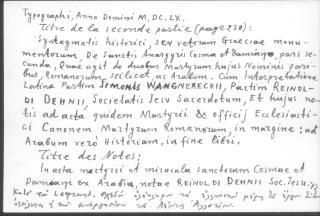 Typographi, Anno Domini M, DC, LX.
Titre de la seconde partie (page 279):
Syntagmatis historici, seu veterum Graeciae monu-
mentorum, De Sanctis Anargyris Cosma et Damiano, pars se-
cunda, Quae agit de duobus Martyrum hujus Nominis pari-
bus, Romanorum scilicet, ac Arabum. Cum Interpretatione
Latina Partim SIMONIS WANGNERECKII, Partim REINOL-
DI DEHNII, Societatis Iesu Sacerdotum, Et hujus no-
tis ad acta quidem Martyrii & officij Ecclesiasti-
ci Canonem Martyrum Romanorum, in margine: ad
Arabum verò Historiam, in fine libri.
Titre des Notes:
In acta martyrii et miracula sanctorum Cosmae et
Damiani ex Arabia, notae REINOLDI DEHNII Soc. Iesu.